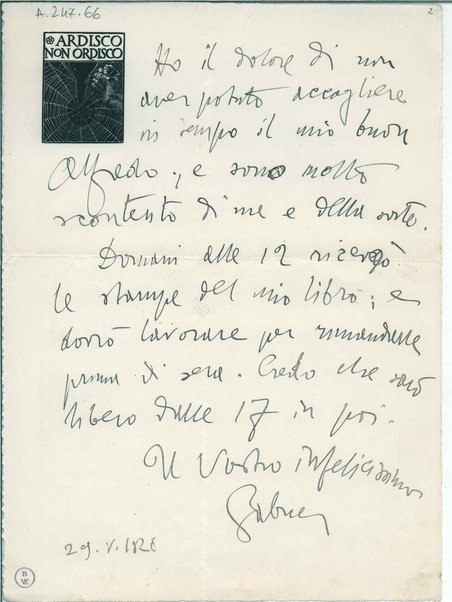 A. 247. 66
2
ARDISCO
NON ORDISCO
Ho il dolore di non
aver potuto accogliere
in tempo il mio buon
Alfredo; e sono molto
scontento di me e della sorte.
Domani alle 12 riceverò
le stampe del mio libro; e
dovrò lavorare per rimandarle
prima di sera. Credo che sarò
libero dalle 17 in poi.
Il Vostro infelicissimo
29. V.
B